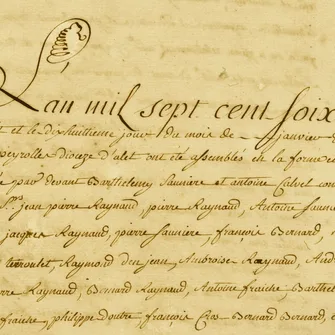 L'an mil sept cent soix
et le dixhuitieme jour du mois de janvier
peyrolle Dioceze d'alet ont été assemblés en la forme
par devant Barthelemy Sauniere et antoine Calvet con
Srs. jean pierre Raynaud, pierre Raynaud, Antoine Sauni
jacques Raynaud, pierre Sauniere, françois Bernard,
terroulet, Raymond dujean, Ambroise Raynaud, And
rre Raynaud, Bernard Raynaud, Antoine frauche Barthel
frauche, philippe doutre, françois Cros Bernard Bernard,